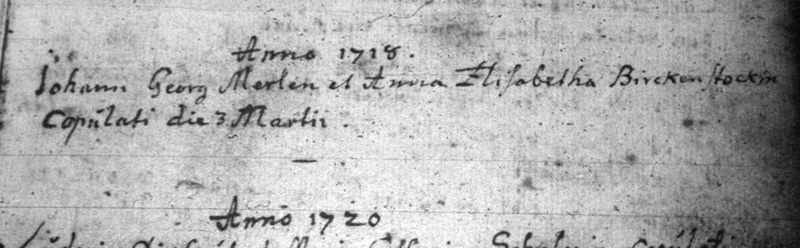 Anno 1718.
Johann Georg Merlen et Anna Elisabetha Birckenstockin
Copulati die 3 Martii.
Anno 1720